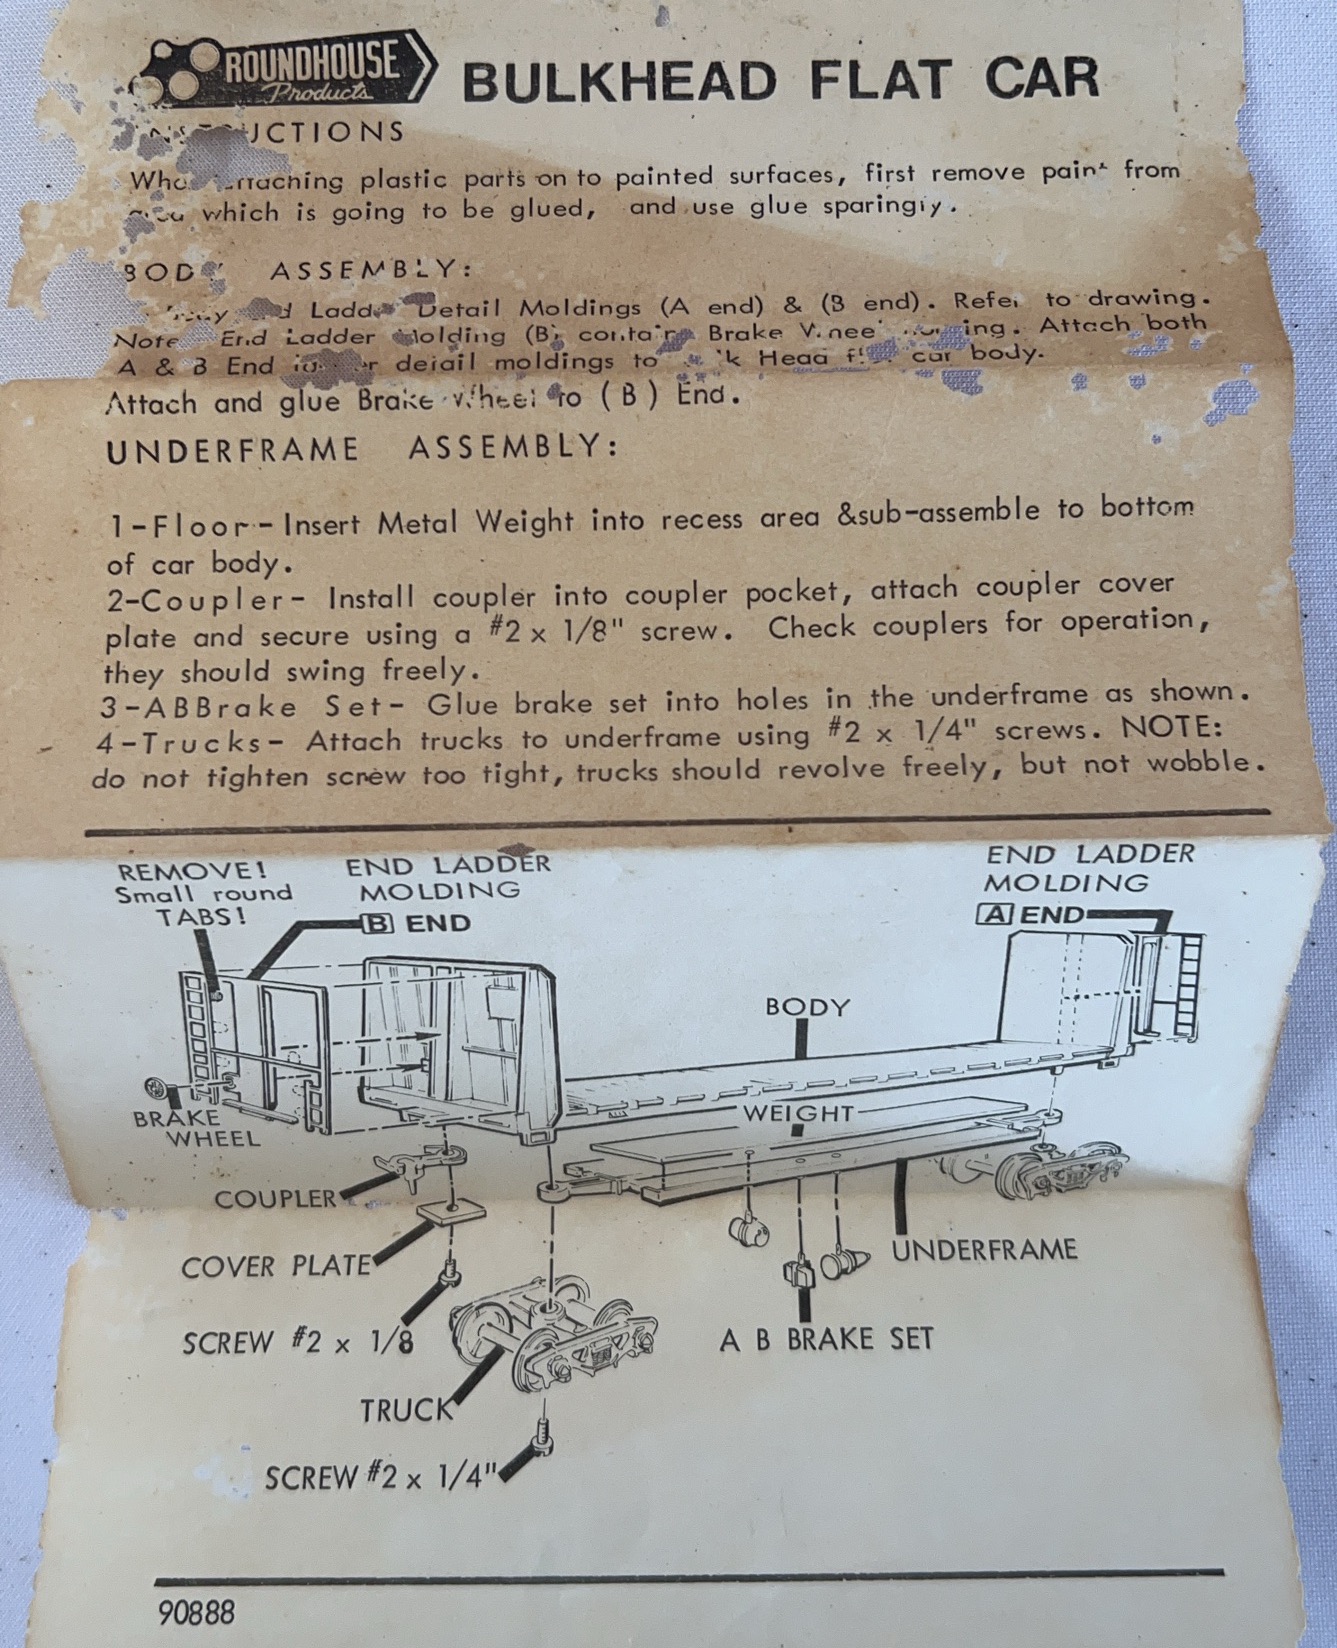 ROUNDHOUSE
Products
BULKHEAD FLAT CAR
plastic parts on to painted surfaces, first remove paint from
which is going to be glued, and use glue sparingly.
BODY ASSEMBLY:
Ladder Detail Moldings (A end) & (B end). Refer to drawing.
Note End Ladder Molding (B) contains Brake Wheel Attach both
A & B End detail moldings to Head car body.
Attach and glue Brake Wheel to (B) End.
UNDERFRAME ASSEMBLY:
1-Floor-Insert Metal Weight into recess area &sub-assemble to bottom
of car body.
2-Coupler- Install coupler into coupler pocket, attach coupler cover
plate and secure using a #2 x 1/8" screw. Check couplers for operation,
they should swing freely.
3-ABBrake Set- Glue brake set into holes in the underframe as shown.
4-Trucks- Attach trucks to underframe using #2 x 1/4" screws. NOTE:
do not tighten screw too tight, trucks should revolve freely, but not wobble.
REMOVE!
Small round
TABS!
END LADDER
MOLDING
B END
END LADDER
MOLDING
A END
BODY
BRAKE
WHEEL
WEIGHT
COUPLER
COVER PLATE
UNDERFRAME
SCREW #2 x 1/8
A B BRAKE SET
TRUCK
SCREW #2 x 1/4"
90888